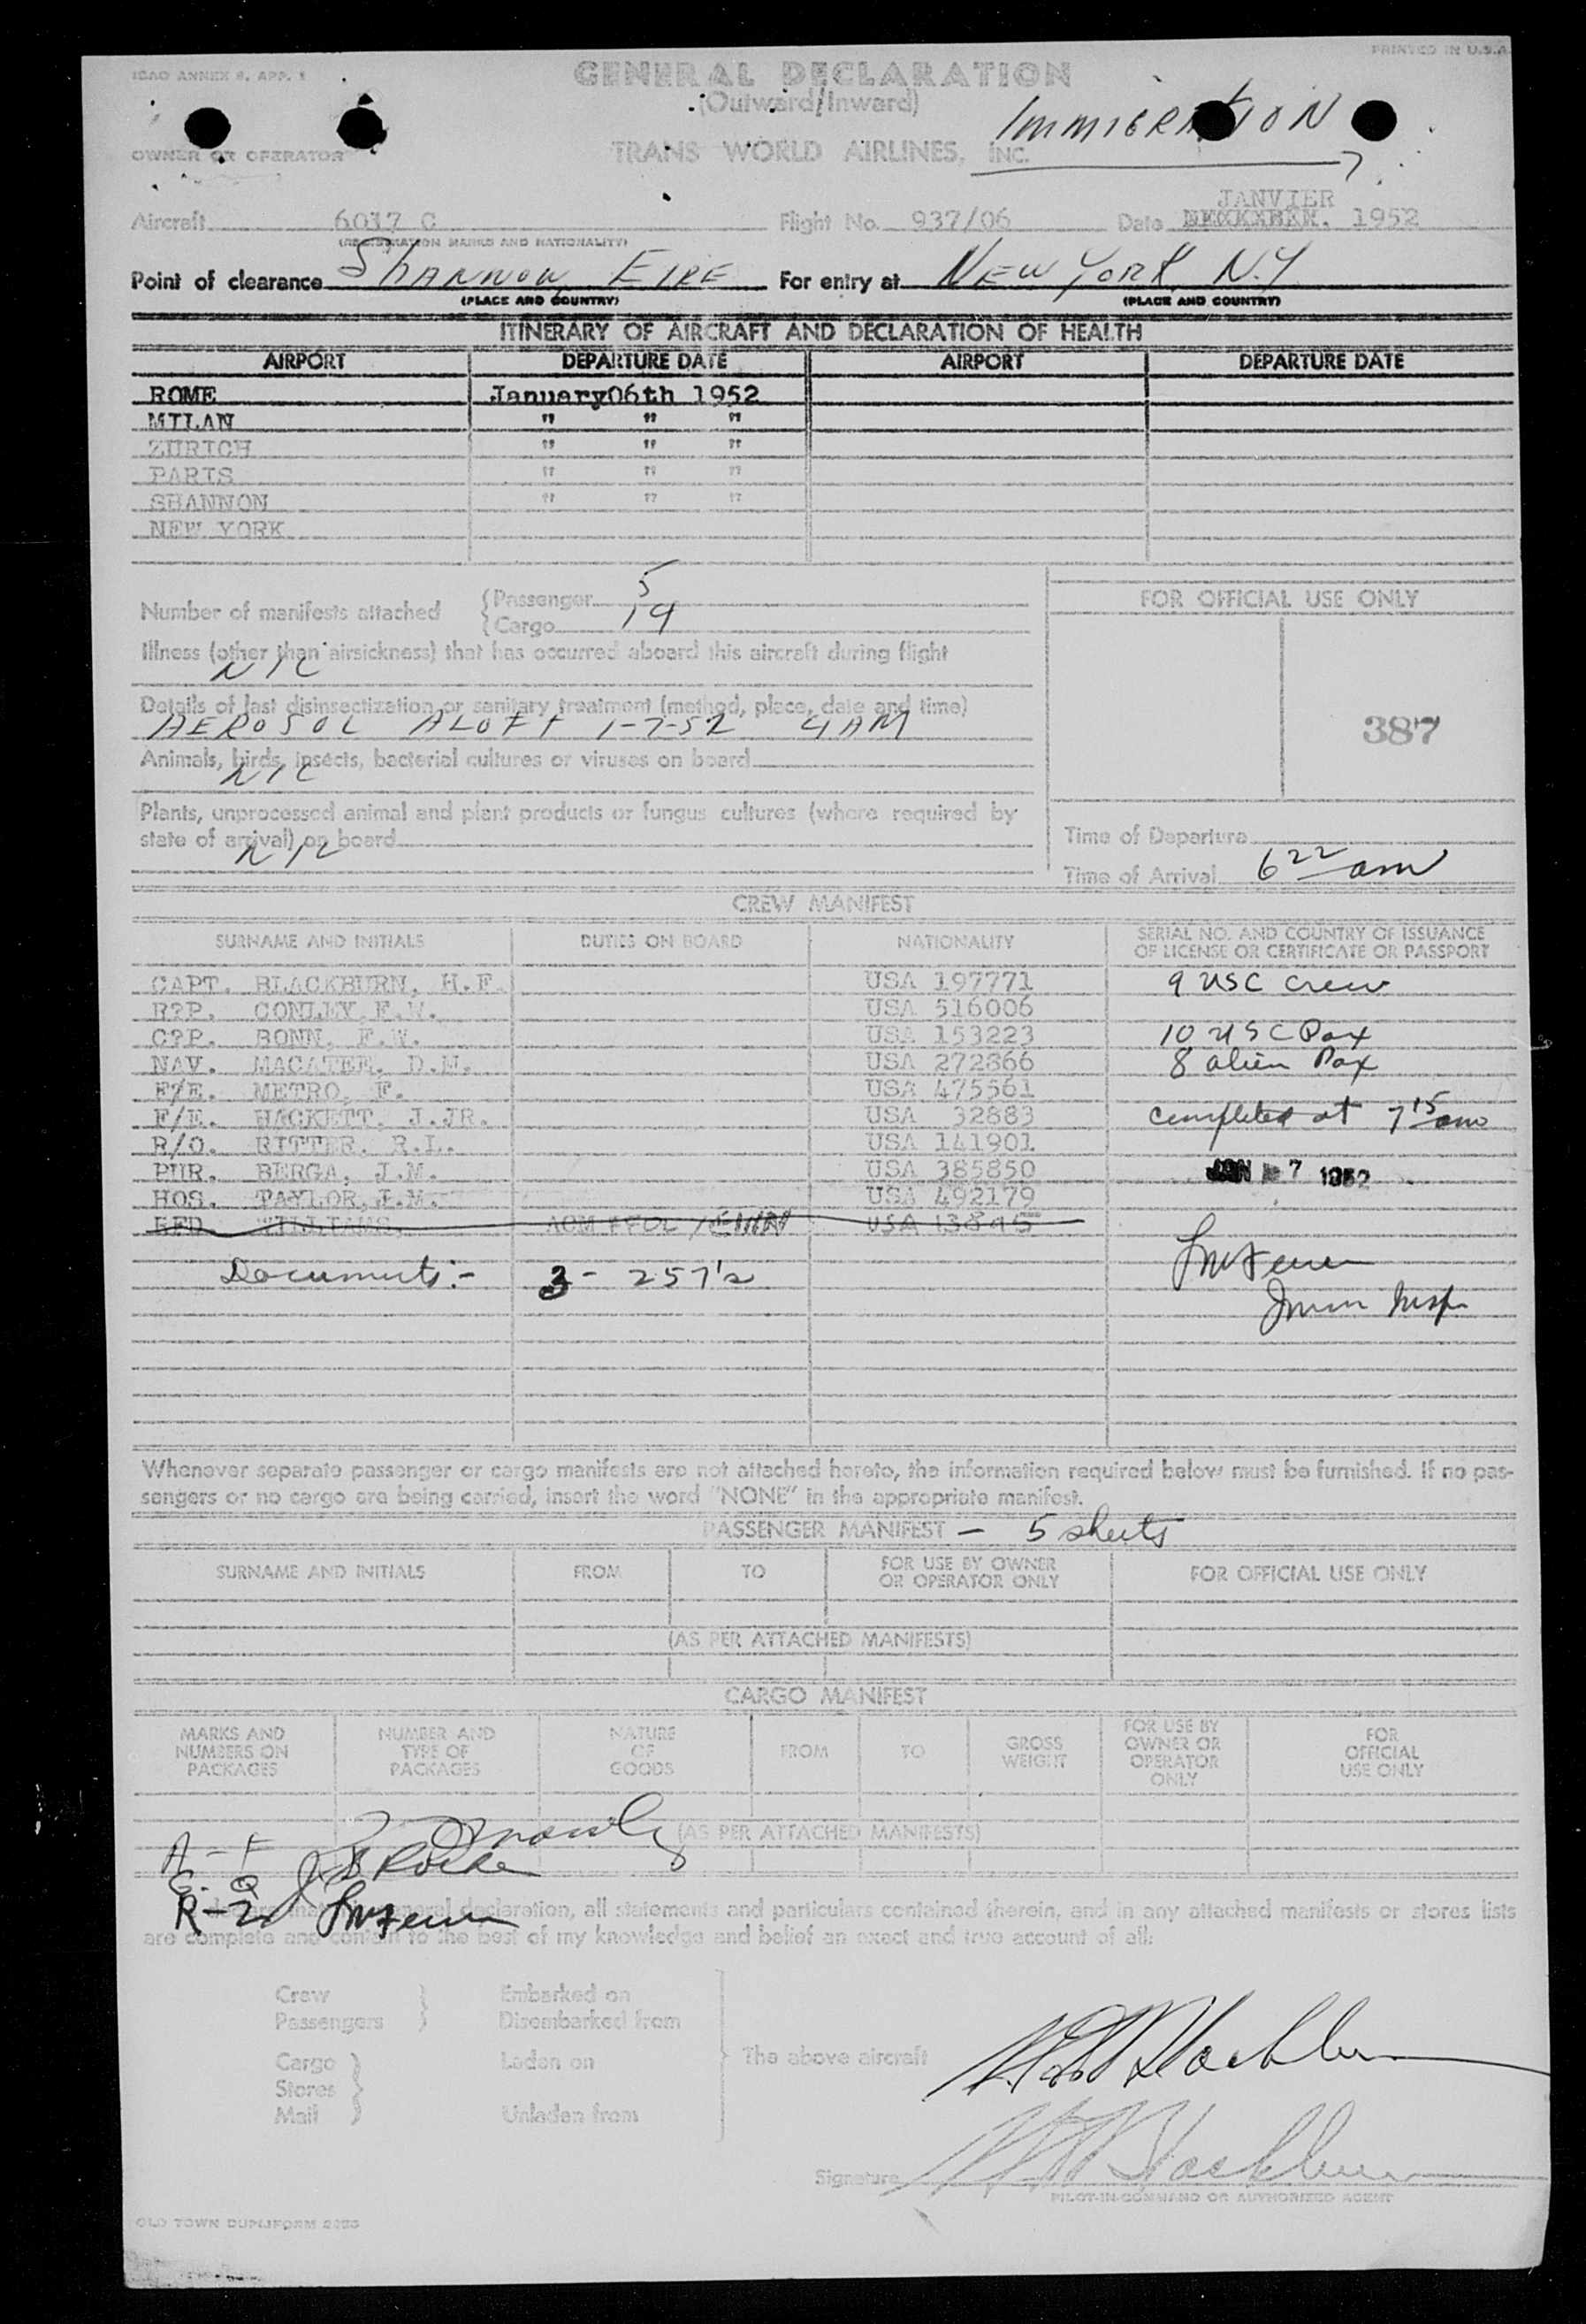 PRINTED IN U.S.A.
ICAO ANNEX 9, APP. 1
GENERAL DECLARATION
(Outward/Inward)
IMMIGRATION
OWNER OR OPERATOR
TRANS WORLD AIRLINES, INC.
JANVIER
Aircraft 6017 C Flight No. 937/06 Date 1952
(REGISTRATION MARKS AND NATIONALITY)
Point of clearance SHANNON, EIRE For entry at NEW YORK, N.Y
(PLACE AND COUNTRY) (PLACE AND COUNTRY)
ITINERARY OF AIRCRAFT AND DECLARATION OF HEALTH
AIRPORT DEPARTURE DATE AIRPORT DEPARTURE DATE
ROME January06th 1952
MILAN " " "
ZURICH " " "
PARIS " " "
SHANNON " " "
NEW YORK
Number of manifests attached
Passenger 5
Cargo 19
FOR OFFICIAL USE ONLY
Illness (other than airsickness) that has occurred aboard this aircraft during flight
NIL
Details of last disinsectization or sanitary treatment (method, place, date and time)
AEROSOL ALOFT 1-7-52 4AM
387
Animals, birds, insects, bacterial cultures or viruses on board
NIL
Plants, unprocessed animal and plant products or fungus cultures (where required by
state of arrival) on board
NIL
Time of Departure
Time of Arrival 6 22 am
CREW MANIFEST
SURNAME AND INITIALS DUTIES ON BOARD NATIONALITY SERIAL NO. AND COUNTRY OF ISSUANCE
OF LICENSE OR CERTIFICATE OR PASSPORT
CAPT. BLACKBURN, H.F. USA 197771 9 USC Crew
R?P. CONLEY, F.W. USA 516006
C?P. BONN, F.W. USA 153223 10 USC Pax
NAV. MACATEE, D.M. USA 272866 8 alien Pax
F/E. METRO, F. USA 475561
F/E. HACKETT, J.JR. USA 32883 completed at 7 15 am
R/O. RITTER, R.L. USA 141901
PUR. BERGA, J.M. USA 385850 JAN 7 1952
HOS. TAYLOR, J.M. USA 492179
WILLIAMS, ACM USA
Documents:- 3 - 257's
Imm Insp
Whenever separate passenger or cargo manifests are not attached hereto, the information required below must be furnished. If no pas-
sengers or no cargo are being carried, insert the word "NONE" in the appropriate manifest.
PASSENGER MANIFEST - 5 sheets
SURNAME AND INITIALS FROM TO FOR USE BY OWNER OR OPERATOR ONLY FOR OFFICIAL USE ONLY
(AS PER ATTACHED MANIFESTS)
CARGO MANIFEST
MARKS AND NUMBERS ON PACKAGES NUMBER AND TYPE OF PACKAGES NATURE OF GOODS FROM TO GROSS WEIGHT FOR USE BY OWNER OR OPERATOR ONLY FOR OFFICIAL USE ONLY
(AS PER ATTACHED MANIFESTS)
R-2
general declaration, all statements and particulars contained therein, and in any attached manifests or stores lists
are complete and contain to the best of my knowledge and belief an exact and true account of all:
Crew Embarked on
Passengers Disembarked from
Cargo Laden on The above aircraft
Stores
Mail Unladen from
Signature
PILOT-IN-COMMAND OR AUTHORIZED AGENT
OLD TOWN DUPLIFORM